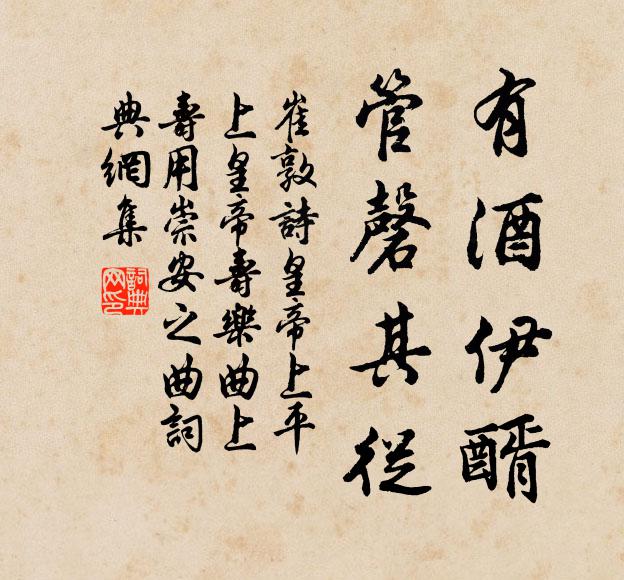 有酒伊醑
管磬其從
崔敦詩皇帝上平
上皇帝壽樂曲上
壽用崇安之曲詞
典網集
詞典网印